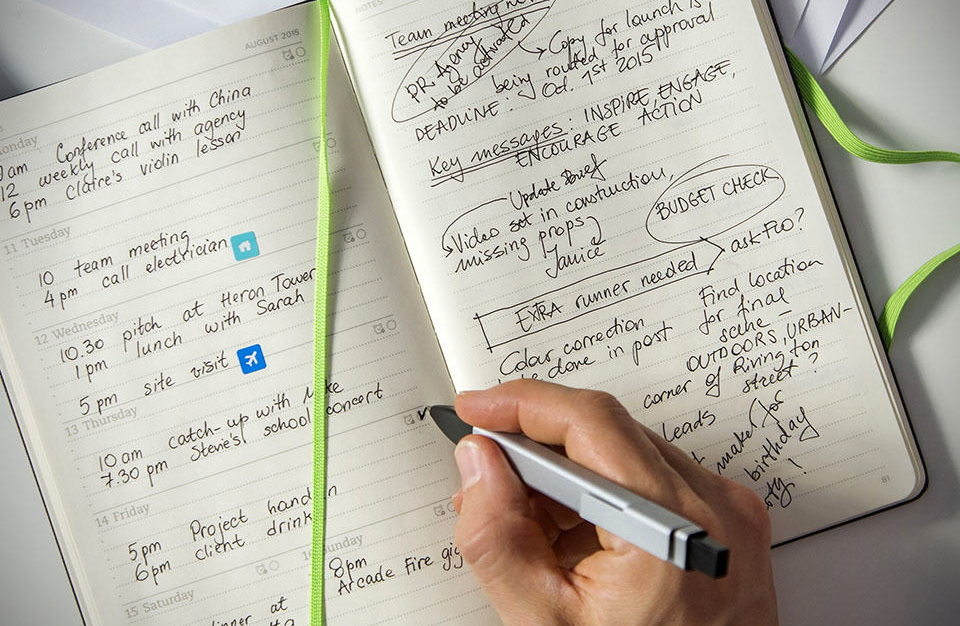 AUGUST 2015
Conference call with China
12 weekly call with agency
6pm Claire's violin lesson
11 Tuesday
10 team meeting
4pm call electrician
12 Wednesday
10.30 pitch at Heron Tower
1pm lunch with Sarah
5pm site visit
13 Thursday
10am catch-up with
7.30pm Steve's school concert
14 Friday
5pm Project hand in
6pm client drink
15 Saturday
at
8pm
Arcade Fire gig
NOTES
Team meeting
PR Agency
to be activated
Copy for launch is
being routed for approval
DEADLINE: Oct. 1st 2015
Key messages: INSPIRE, ENGAGE,
ENCOURAGE ACTION
Update Brief
Video set in construction,
missing props?
Janice
BUDGET CHECK
EXTRA runner needed
ask Flo?
Colour correction
be done in post
Find location
for final
scene –
OUTDOORS, URBAN–
corner of Rivington
street?
Leads
make for
birthday
81